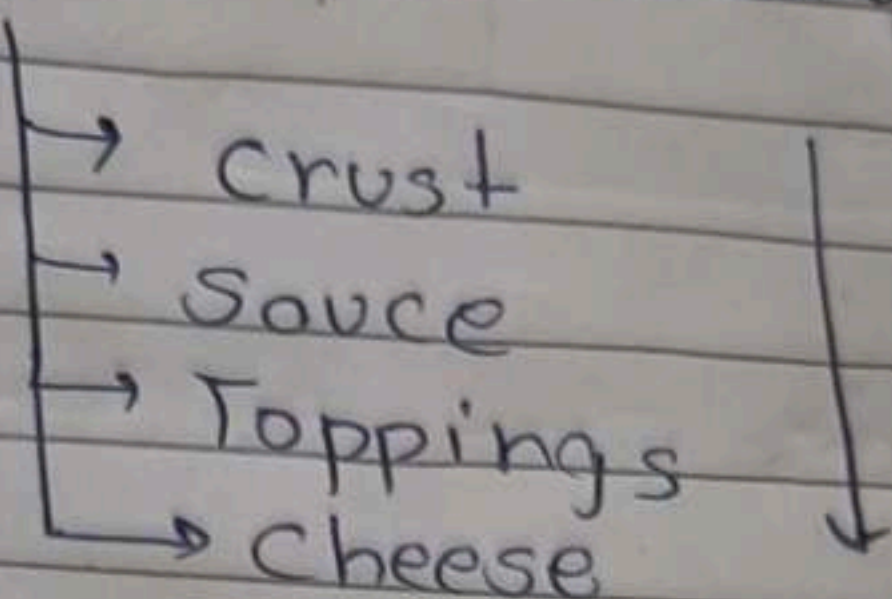 Crust
Sauce
Toppings
Cheese